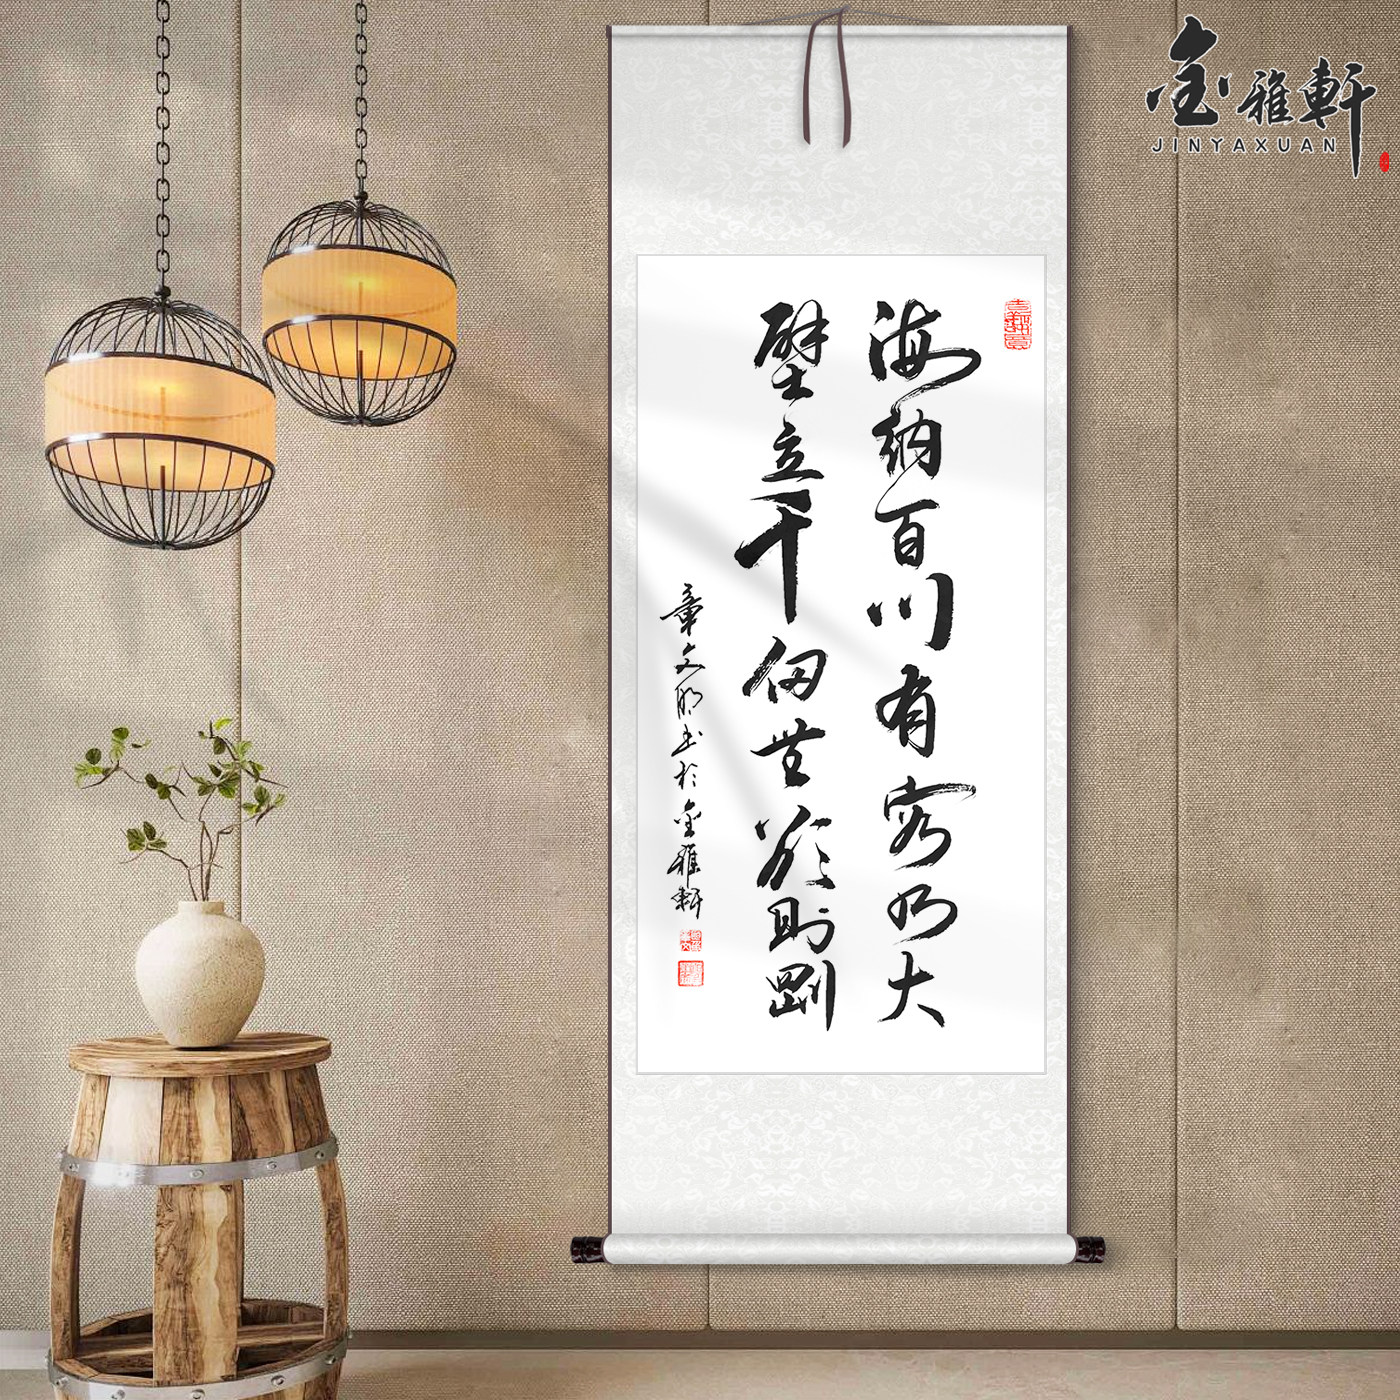 海纳百川有容乃大
壁立千仞無欲則剛
章文明书於金雅軒
金雅軒
JINYAXUAN